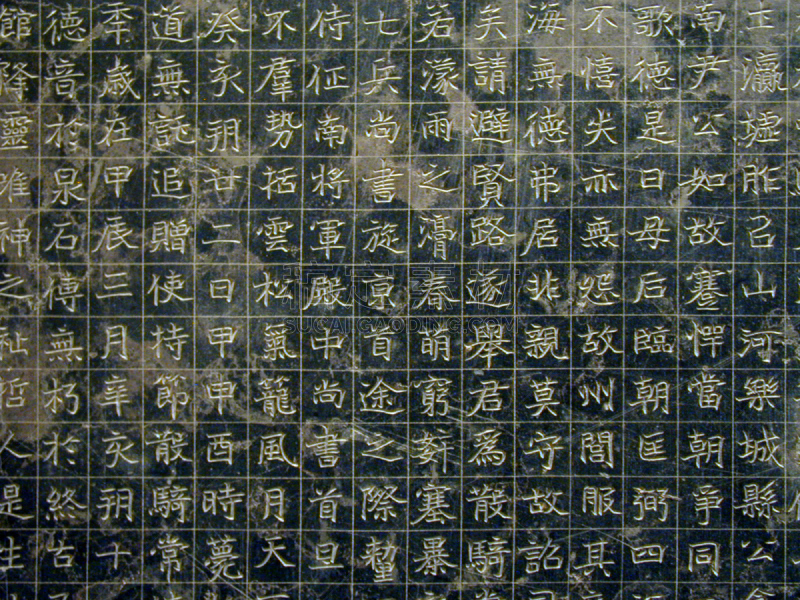 瀛墟胙山河樂城縣公
南尹公如故謇當朝爭同
歌德是日母后臨朝匡弼四
不憘失亦無怨故州閭服其
海無德弗居非親莫守故詔
矣請避賢路遂舉君為散騎
若濛雨之春萌窮塞暴
七兵尚書旋京首途之際蹔
侍征南將軍殿中尚書首旦
不羣勢括雲松氣籠風月天
癸亥朔廿二日甲申酉時薨
道無訛追贈使持節散騎常
秊歲在甲辰三月辛亥朔十
德音於泉石傳無朽於終古
館降靈唯神之祉哲人是生
SUCAIGAODING.COM